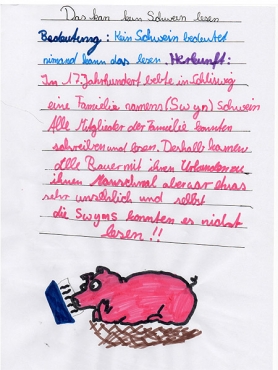 Das kan kein Schwein lesen
Bedeutung: Kein Schwein bedeutet
nimand kann das lesen. Herkunft:
Im 17 Jahrhundert lebte in Schleswig
eine Familie namens (Swyn) Schwein
Alle Mitglieder der Familie konnten
schreiben und lesen. Deshalb kamen
alle Bauer mit ihren Urkunden zu
ihnen Manschmal aber war etwas
sehr unserlich und selbst
die Swyns konnten es nicht
lesen!!